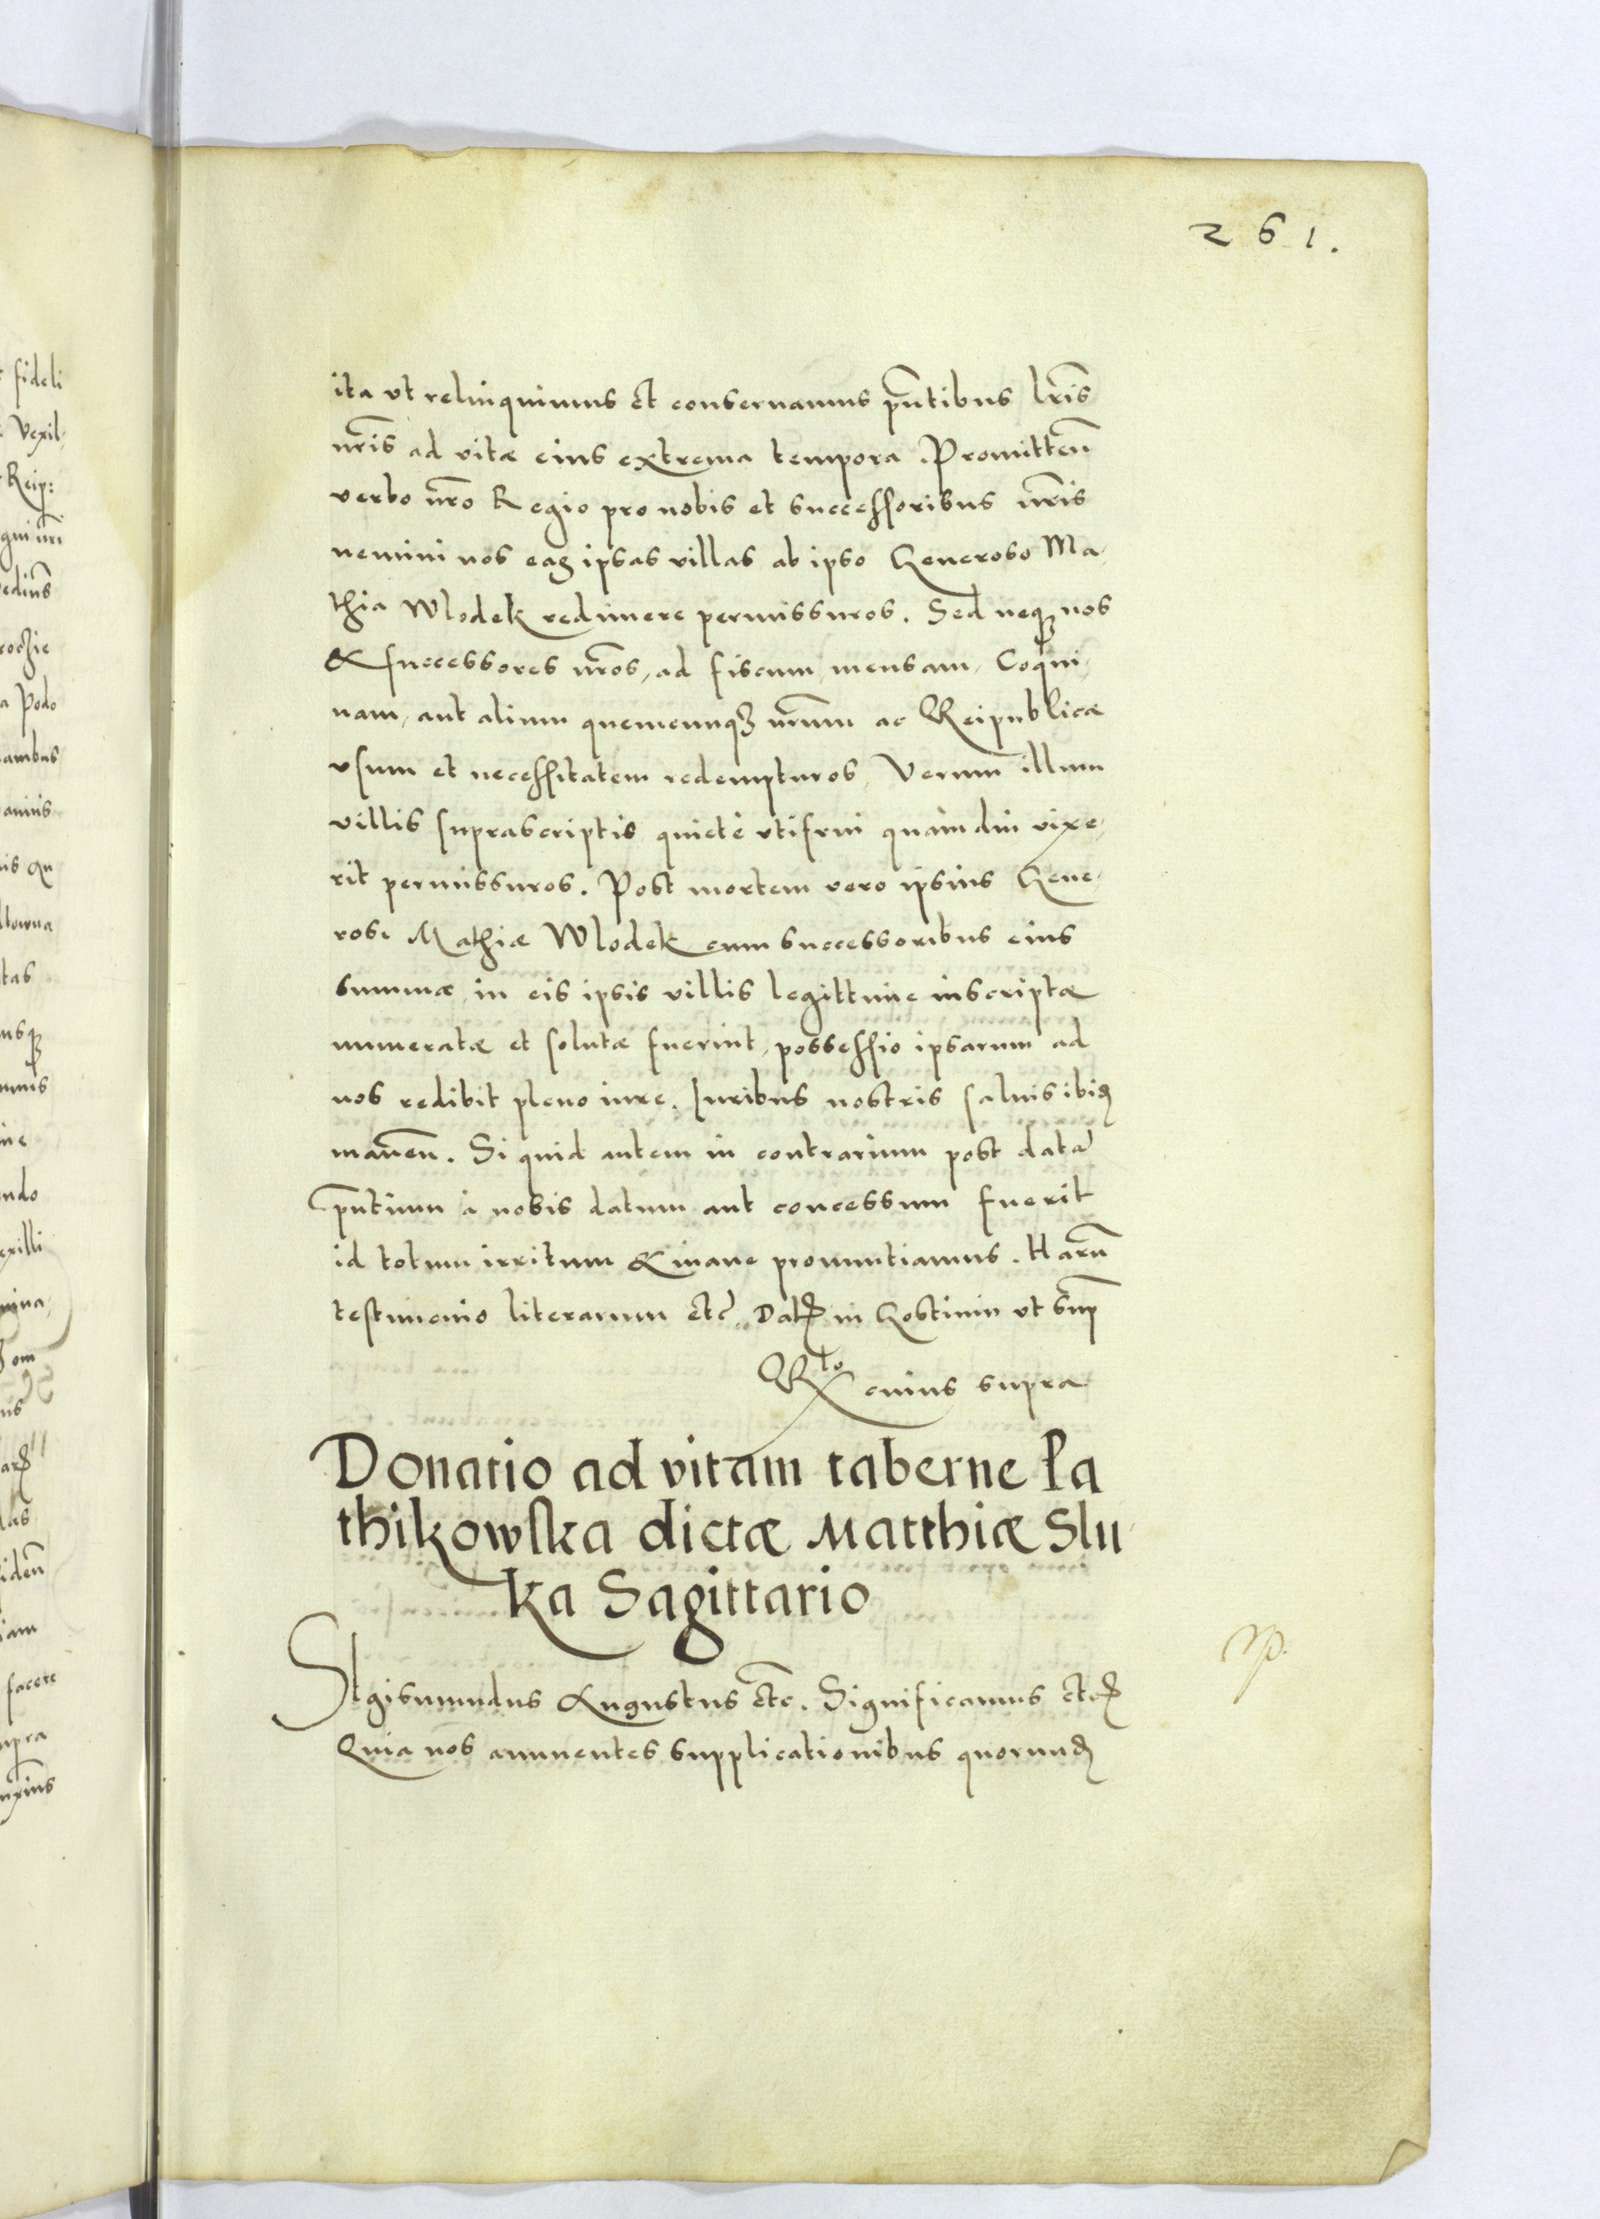 261.
ita vt relinquimus et conseruamus pñtibus lr̃is
nr̃is ad vitæ eius extrema tempora. Promitteñ
verbo nr̃o Regio pro nobis et successoribus nr̃is
nemini nos eas ipsas villas ab ipso Generoso Ma,
thia Wlodek redimere permissuros. Sed neqꝫ nos
& successores nr̃os, ad fiscum, mensam, Coqui,
nam, aut alium quemcunqꝫ nr̃um ac Reipublicæ
vsum et necessitatem redempturos, Verum illum
villis suprascriptis quietè vtifrui quàm diu vixe,
rit permissuros. Post mortem vero ipsius Gene,
rosi Mathiæ Wlodek cum successoribus eius
summæ in eis ipsis villis legittime inscriptæ
numeratæ et solutæ fuerint, possessio ipsarum ad
nos redibit pleno iure. Iuribus nostris saluis ibiꝫ
maneñ. Si quid autem in contrarium post datã
pñtium à nobis datum aut concessum fuerit
id totum irritum & inane pronuntiamus. Harũ
testimonio literarum etc̃. Datꝫ in Gostinin vt sup̃
Rto cuius supra
Donatio ad vitam taberne Pa
thikowska dictæ Matthiæ Slu,
ka Sagittario
Sigismundus Augustus etc. Significamus etcꝫ
Quia nos annuentes supplicationibus quorundꝫ
fideli
Vexil,
Reip:
Podo
ambus
tas
ndo
exilli
iam
facere
upra